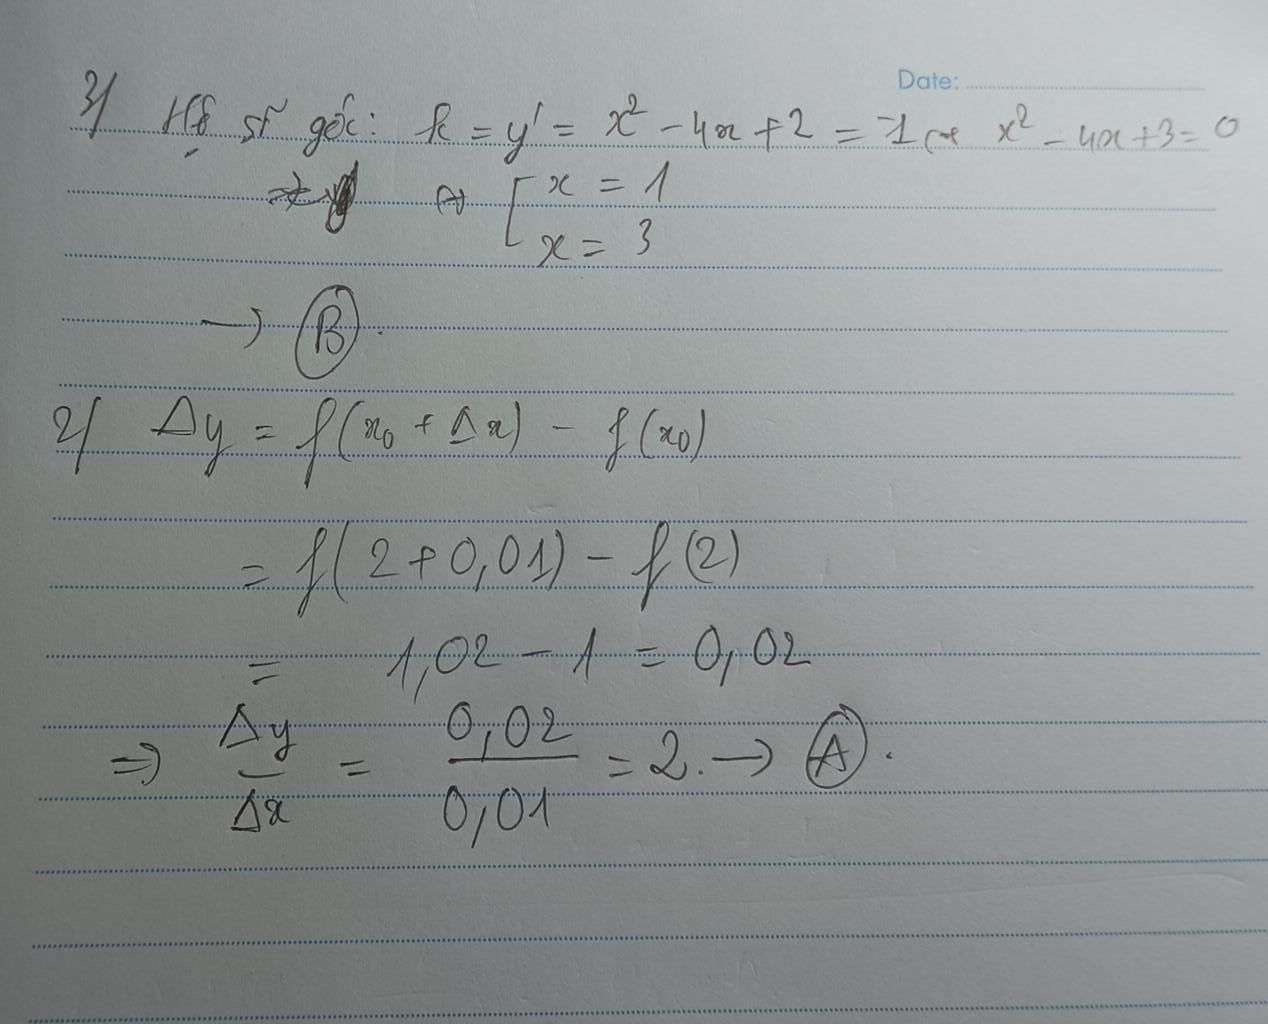 Date:
3/ Hệ số góc: k = y' = x² - 4x + 2 = -1 ⇔ x² - 4x + 3 = 0
⇔ [ x = 1
x = 3
→ B.
2/ Δy = f(x₀ + Δx) - f(x₀)
= f(2 + 0,01) - f(2)
= 1,02 - 1 = 0,02
⇒ Δy/Δx = 0,02/0,01 = 2. → A.